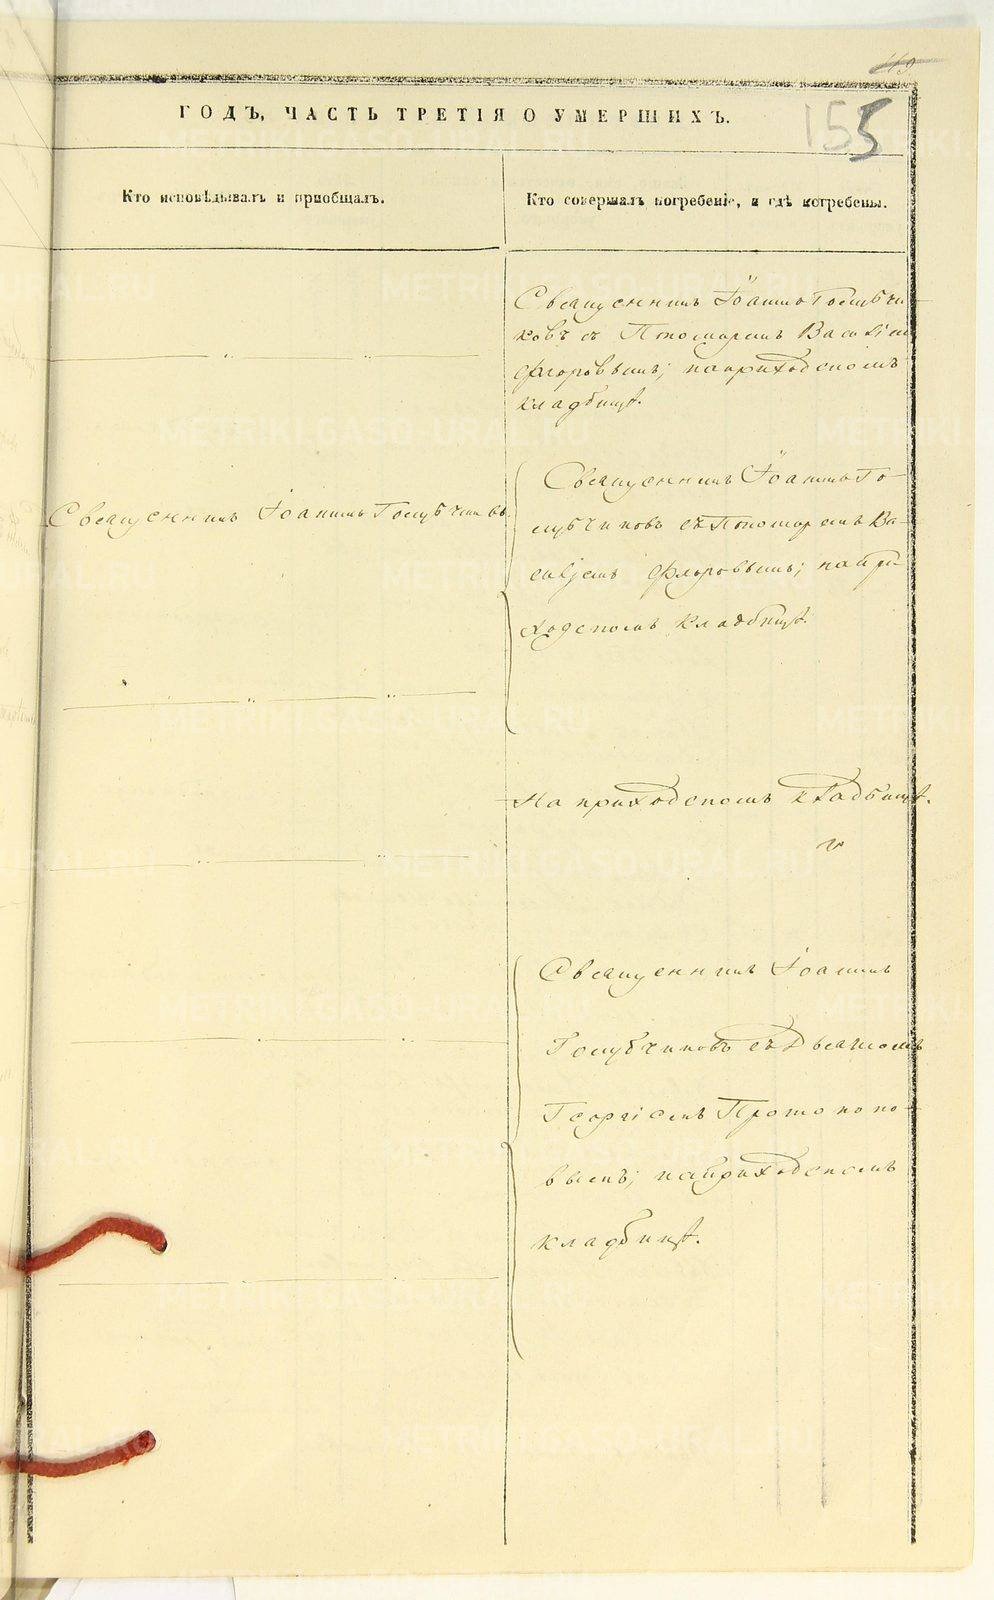 49
155
ГОДЪ, ЧАСТЬ ТРЕТІЯ О УМЕРШИХЪ.
Кто исповѣдывалъ и пріобщалъ.
Кто совершалъ погребеніе, и гдѣ погребены.
Священникъ Іоаннъ Голубчи-
ковъ съ Пономаремъ Василіем
Флоровымъ; на приходскомъ
кладбищѣ.
Священникъ Іоаннъ Голубчиковъ
Священникъ Іоаннъ Го-
лубчиковъ съ Пономаремъ Ва-
силіемъ Флоровымъ; на при-
ходскомъ кладбищѣ.
На приходскомъ кладбищѣ.
Священникъ Іоаннъ
Голубчиковъ съ Дьякономъ
Георгіемъ Протопопо-
вымъ; на приходскомъ
кладбищѣ.
METRIKI.GASO-URAL.RU